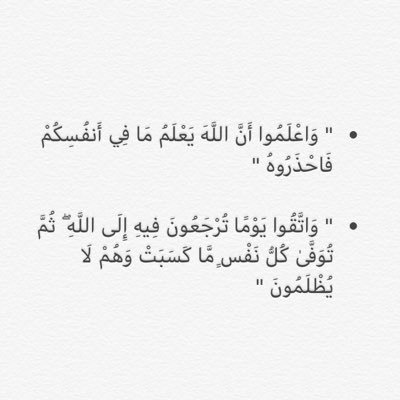 • " وَاعْلَمُوا أَنَّ اللَّهَ يَعْلَمُ مَا فِي أَنفُسِكُمْ
فَاحْذَرُوهُ "
• " وَاتَّقُوا يَوْمًا تُرْجَعُونَ فِيهِ إِلَى اللَّهِ ۖ ثُمَّ
تُوَفَّىٰ كُلُّ نَفْسٍ مَّا كَسَبَتْ وَهُمْ لَا
يُظْلَمُونَ "